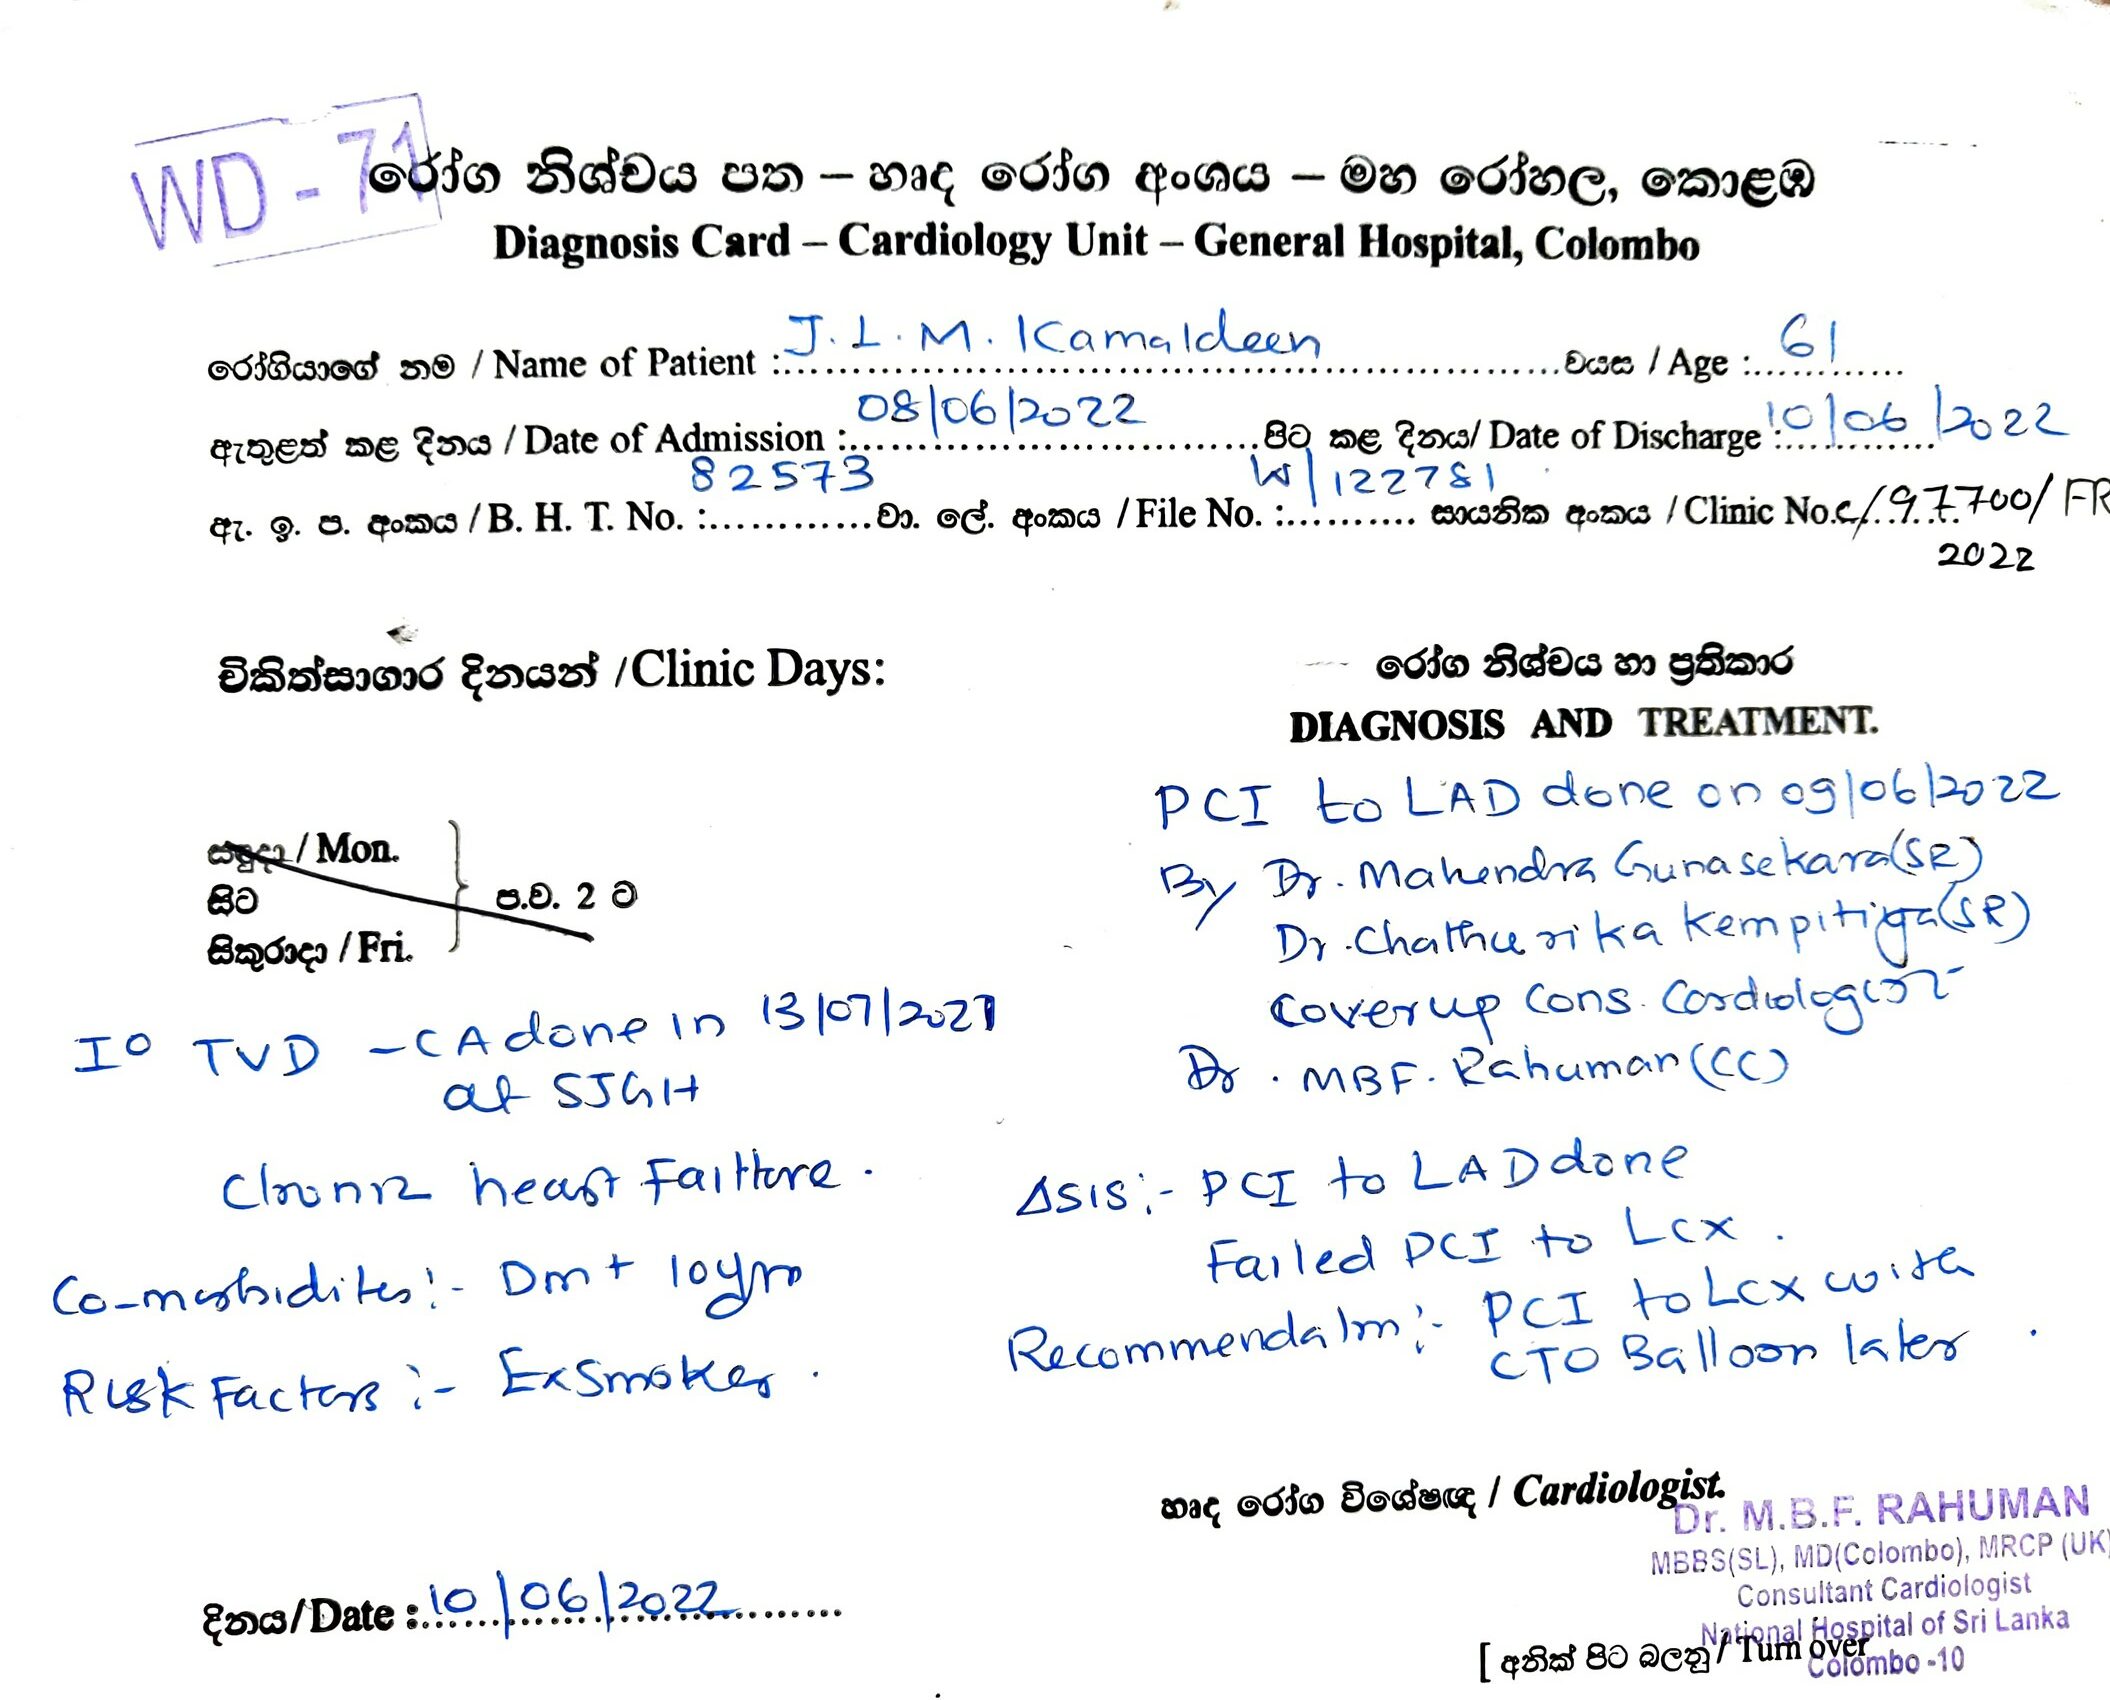 WD - 71
රෝග නිශ්චය පත – හෘද රෝග අංශය – මහ රෝහල, කොළඹ
Diagnosis Card – Cardiology Unit – General Hospital, Colombo
රෝගියාගේ නම / Name of Patient : J. L. M. Kamaldeen වයස / Age : 61
ඇතුළත් කළ දිනය / Date of Admission : 08/06/2022 පිට කළ දිනය/ Date of Discharge : 10/06/2022
ඇ. ඉ. ප. අංකය / B. H. T. No. : 82573 වා. ලේ. අංකය / File No. : W/122781 සායනික අංකය / Clinic No. C/97700/FR
2022
චිකිත්සාගාර දිනයන් /Clinic Days:
සඳුදා / Mon.
සිට
ප.ව. 2 ට
සිකුරාදා / Fri.
Iº TVD – CA done in 13/07/2021
at SJGH
Chronic heart Failure .
Co-morbidites :- Dm + 10yrs
Risk Factors :- Ex Smoker .
රෝග නිශ්චය හා ප්‍රතිකාර
DIAGNOSIS AND TREATMENT.
PCI to LAD done on 09/06/2022
By Dr. Mahendra Gunasekara (SR)
Dr. Chathurika Kempitiya (SR)
Cover up Cons. Cardiologist
Dr. MBF. Rahuman (CC)
Δsis :- PCI to LAD done
Failed PCI to Lcx .
Recommendation :- PCI to Lcx with
CTO Balloon later .
හෘද රෝග විශේෂඥ / Cardiologist.
Dr. M.B.F. RAHUMAN
MBBS(SL), MD(Colombo), MRCP (UK)
Consultant Cardiologist
National Hospital of Sri Lanka
Colombo -10
දිනය/Date : 10/06/2022
[ අනික් පිට බලනු / Turn over